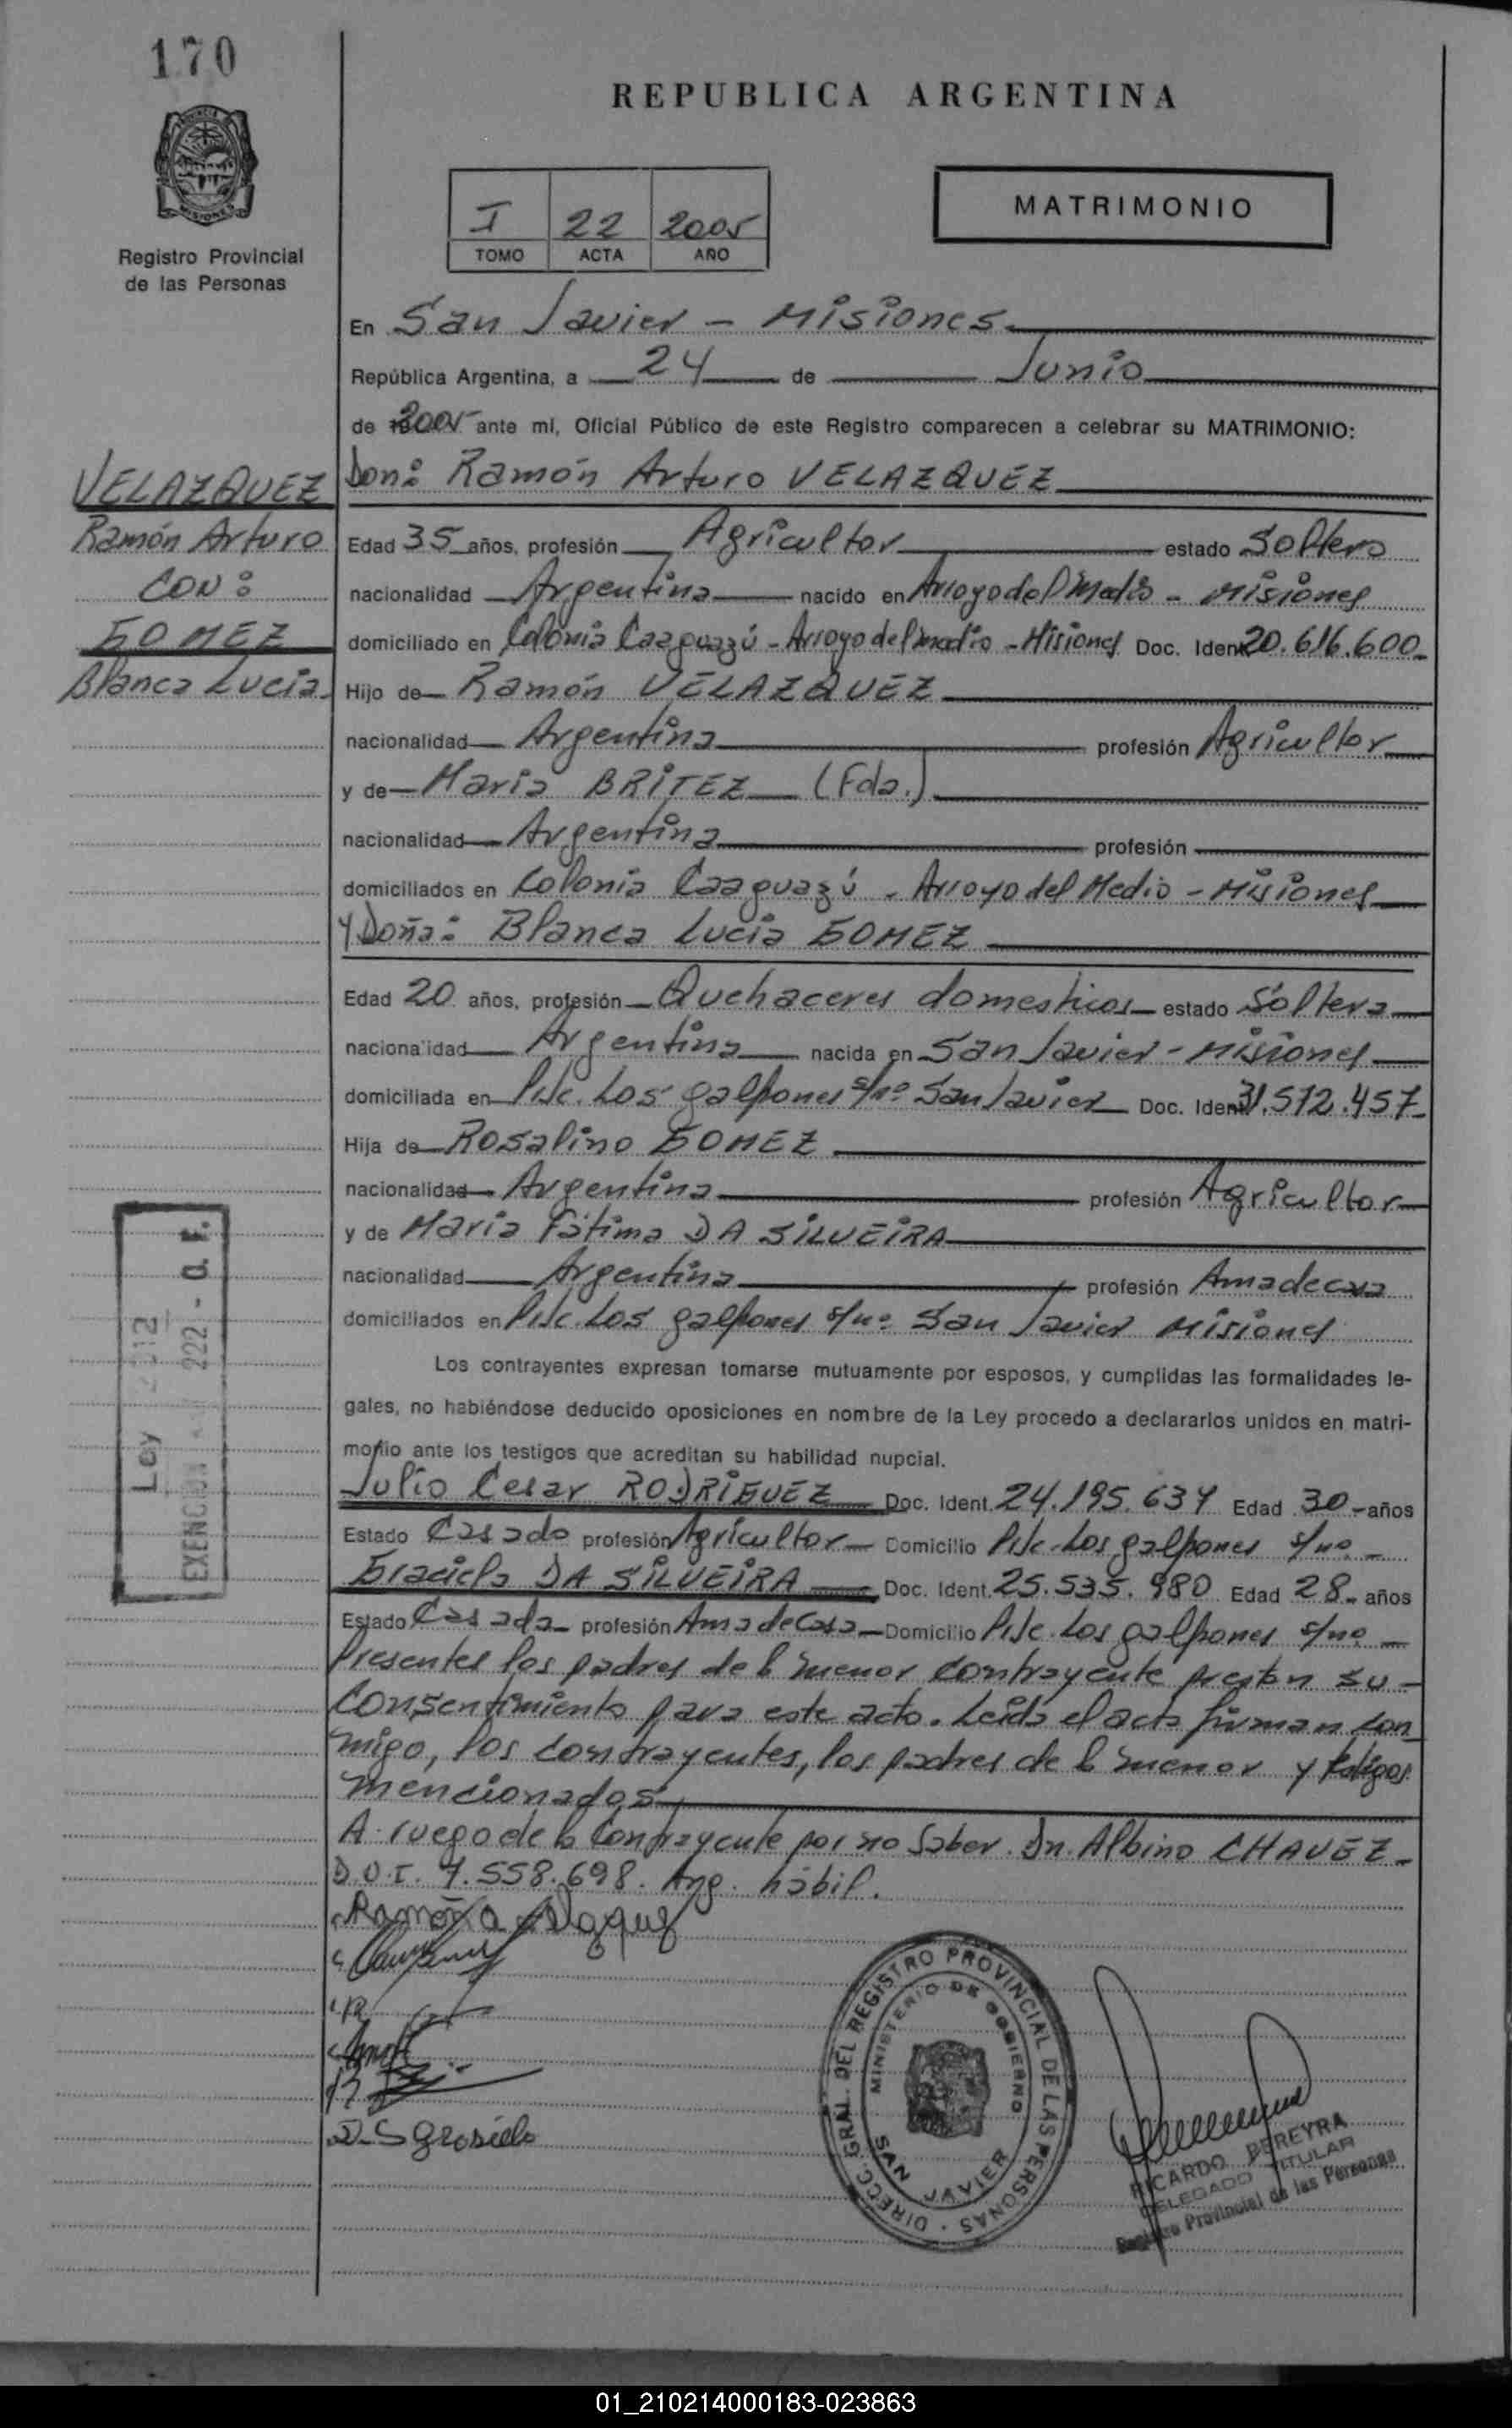 170
REPUBLICA ARGENTINA
MISIONES
Registro Provincial
de las Personas
I 22 2005
TOMO ACTA AÑO
MATRIMONIO
En San Javier - Misiones
República Argentina, a 24 de Junio
de 2005 ante mí, Oficial Público de este Registro comparecen a celebrar su MATRIMONIO:
VELAZQUEZ
Ramón Arturo
CON:
GOMEZ
Blanca Lucia
Don: Ramón Arturo VELAZQUEZ
Edad 35 años, profesión Agricultor estado Soltero
nacionalidad Argentina nacido en Arroyo del Medio - Misiones
domiciliado en Colonia Caaguazú - Arroyo del medio - Misiones Doc. Ident. 20.616.600
Hijo de Ramón VELAZQUEZ
nacionalidad Argentina profesión Agricultor
y de Maria BRITEZ (Fda.)
nacionalidad Argentina profesión
domiciliados en Colonia Caaguazú - Arroyo del Medio - Misiones
y Doña: Blanca Lucia GOMEZ
Edad 20 años, profesión Quehaceres domesticos estado Soltera
nacionalidad Argentina nacida en San Javier - Misiones
domiciliada en Los galpones s/nº San Javier Doc. Ident. 31.572.457
Hija de Rosalino GOMEZ
nacionalidad Argentina profesión Agricultor
y de Maria Fátima DA SILVEIRA
nacionalidad Argentina profesión Ama de casa
domiciliados en Los galpones s/nº San Javier Misiones
Los contrayentes expresan tomarse mutuamente por esposos, y cumplidas las formalidades le-
gales, no habiéndose deducido oposiciones en nombre de la Ley procedo a declararlos unidos en matri-
monio ante los testigos que acreditan su habilidad nupcial.
Julio Cesar RODRIGUEZ Doc. Ident. 24.195.634 Edad 30 años
Estado Casado profesión Agricultor Domicilio Los galpones s/nº
Graciela DA SILVEIRA Doc. Ident. 25.535.980 Edad 28 años
Estado Casada profesión Ama de Casa Domicilio Los galpones s/nº
Presentes los padres de la menor contrayente prestan su
consentimiento para este acto. Leída el acta firman con
migo, los contrayentes, los padres de la menor y testigos
mencionados
A ruego de la contrayente por no saber Dn. Albino CHAVEZ
D.O.I. 7.558.698. Arg. hábil.
Ley
EXENCION 222 - a. F.
DIRECC. GRAL. DEL REGISTRO PROVINCIAL DE LAS PERSONAS
MINISTERIO DE GOBIERNO
SAN JAVIER
RICARDO PEREYRA
DELEGADO TITULAR
Registro Provincial de las Personas
01_210214000183-023863